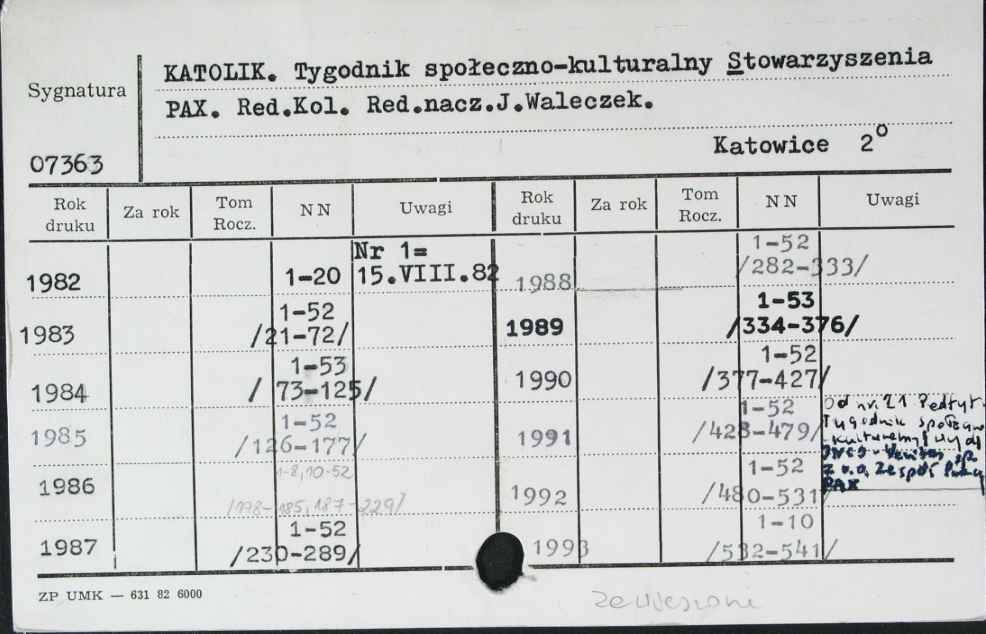 Sygnatura
07363
KATOLIK. Tygodnik społeczno-kulturalny Stowarzyszenia
PAX. Red.Kol. Red.nacz.J.Waleczek.
Katowice 2°
Rok druku Za rok Tom Rocz. NN Uwagi Rok druku Za rok Tom Rocz. NN Uwagi
1982 1-20 Nr 1=
15.VIII.82
1983 1-52
/21-72/
1984 1-53
/ 73-125/
1985 1-52
/126-177/
1986 1-8, 10-52
/178-185, 187-229/
1987 1-52
/230-289/
1988 1-52
/282-333/
1989 1-53
/334-376/
1990 1-52
/377-427/
1991 1-52
/428-479/
Od nr. 21 Podtyt.
Tygodnik
PAX
1992 1-52
/480-531/
1993 1-10
/532-541/
ZP UMK — 631 82 6000